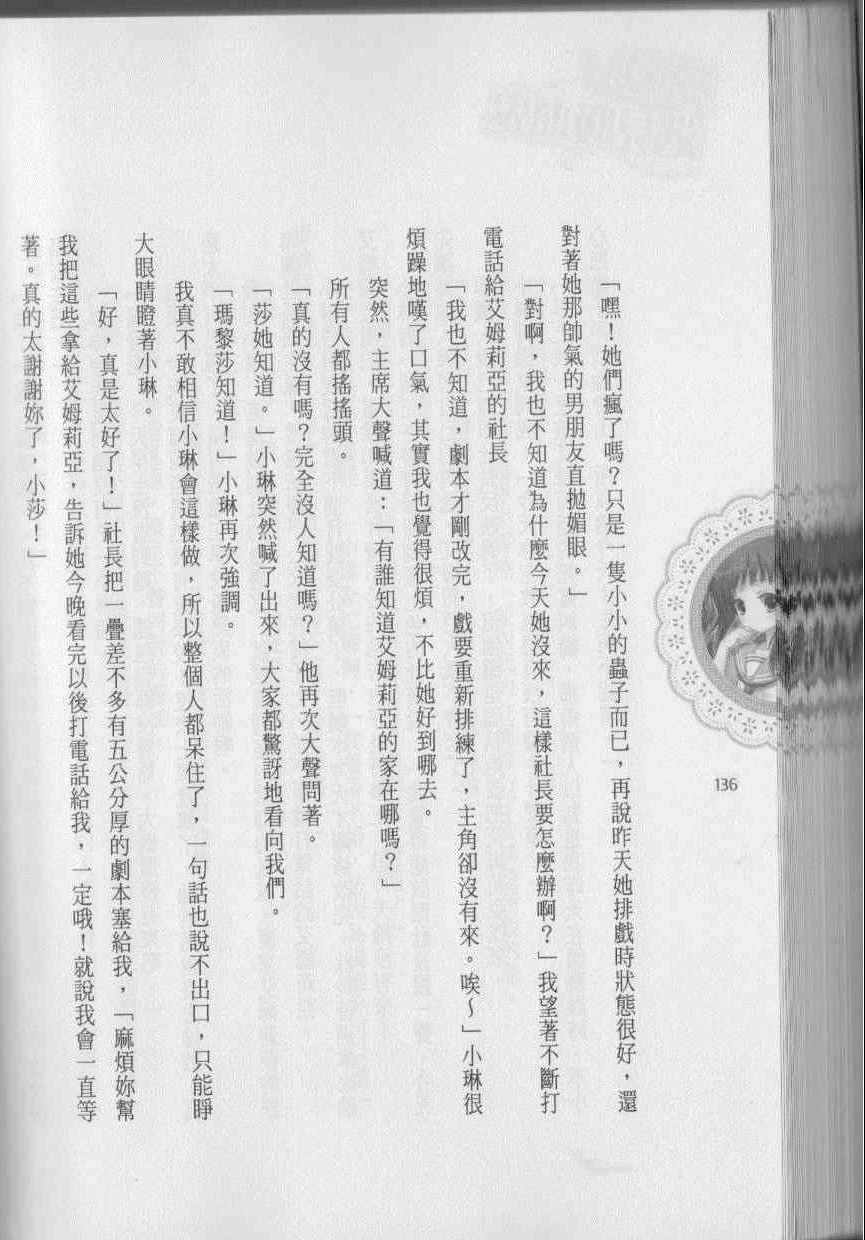 「嘿！她們瘋了嗎？只是一隻小小的蟲子而已，再說昨天她排戲時狀態很好，還
對著她那帥氣的男朋友直拋媚眼。」
「對啊，我也不知道為什麼今天她沒來，這樣社長要怎麼辦啊？」我望著不斷打
電話給艾姆莉亞的社長
「我也不知道，劇本才剛改完，戲要重新排練了，主角卻沒有來。唉～」小琳很
煩躁地嘆了口氣，其實我也覺得很煩，不比她好到哪去。
突然，主席大聲喊道：「有誰知道艾姆莉亞的家在哪嗎？」
所有人都搖搖頭。
「真的沒有嗎？完全沒人知道嗎？」他再次大聲問著。
「莎她知道。」小琳突然喊了出來，大家都驚訝地看向我們。
「瑪黎莎知道！」小琳再次強調。
我真不敢相信小琳會這樣做，所以整個人都呆住了，一句話也說不出口，只能睜
大眼睛瞪著小琳。
「好，真是太好了！」社長把一疊差不多有五公分厚的劇本塞給我，「麻煩妳幫
我把這些拿給艾姆莉亞，告訴她今晚看完以後打電話給我，一定哦！就說我會一直等
著。真的太謝謝妳了，小莎！」
136